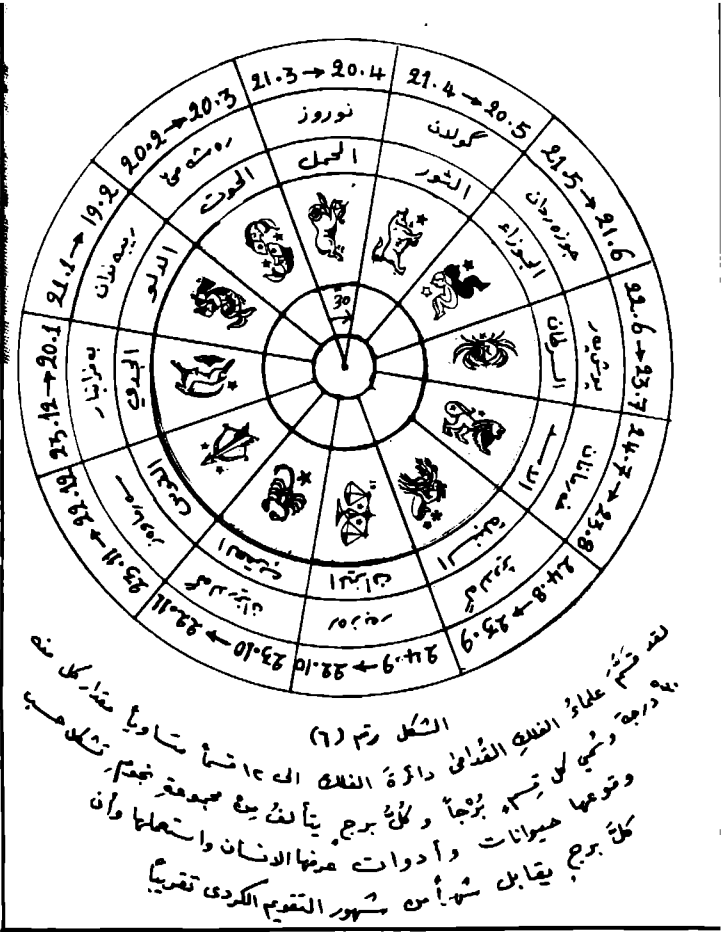 21.3 → 20.4
نوروز
الحمل
21.4 → 20.5
گولان
الثور
21.5 → 21.6
جوزه‌ردان
الجوزاء
22.6 → 23.7
پوش‌پەڕ
السرطان
24.7 → 23.8
خەرمانان
الاسد
24.8 → 23.9
گەلاوێژ
السنبلة
24.9 → 22.10
ره‌زبه‌ر
الميزان
23.10 → 22.11
گەلارێزان
العقرب
23.11 → 22.12
سەرماوەز
القوس
23.12 → 20.1
بەفرانبار
الجدي
21.1 → 19.2
ريبه‌ندان
الدلو
20.2 → 20.3
ره‌شه‌مێ
الحوت
30
الشكل رقم (٦)
لقد قسَّمَ علماءُ الفلكِ القُدامىٰ دائرةَ الفلك الى ١٢ قسماً متساوياً مقدار كل منه
٣٠ درجة وسُمي كل قِسم بُرْجاً و كُلُّ برجٍ يتألفُ مِنْ مجموعةِ نجومٍ تشكل حسب
وقوعها حيوانات وأدوات عرفها الانسان واستعملها وأن
كلَّ برجٍ يقابل شهراً من شهور التقويم الكردى تقريباً